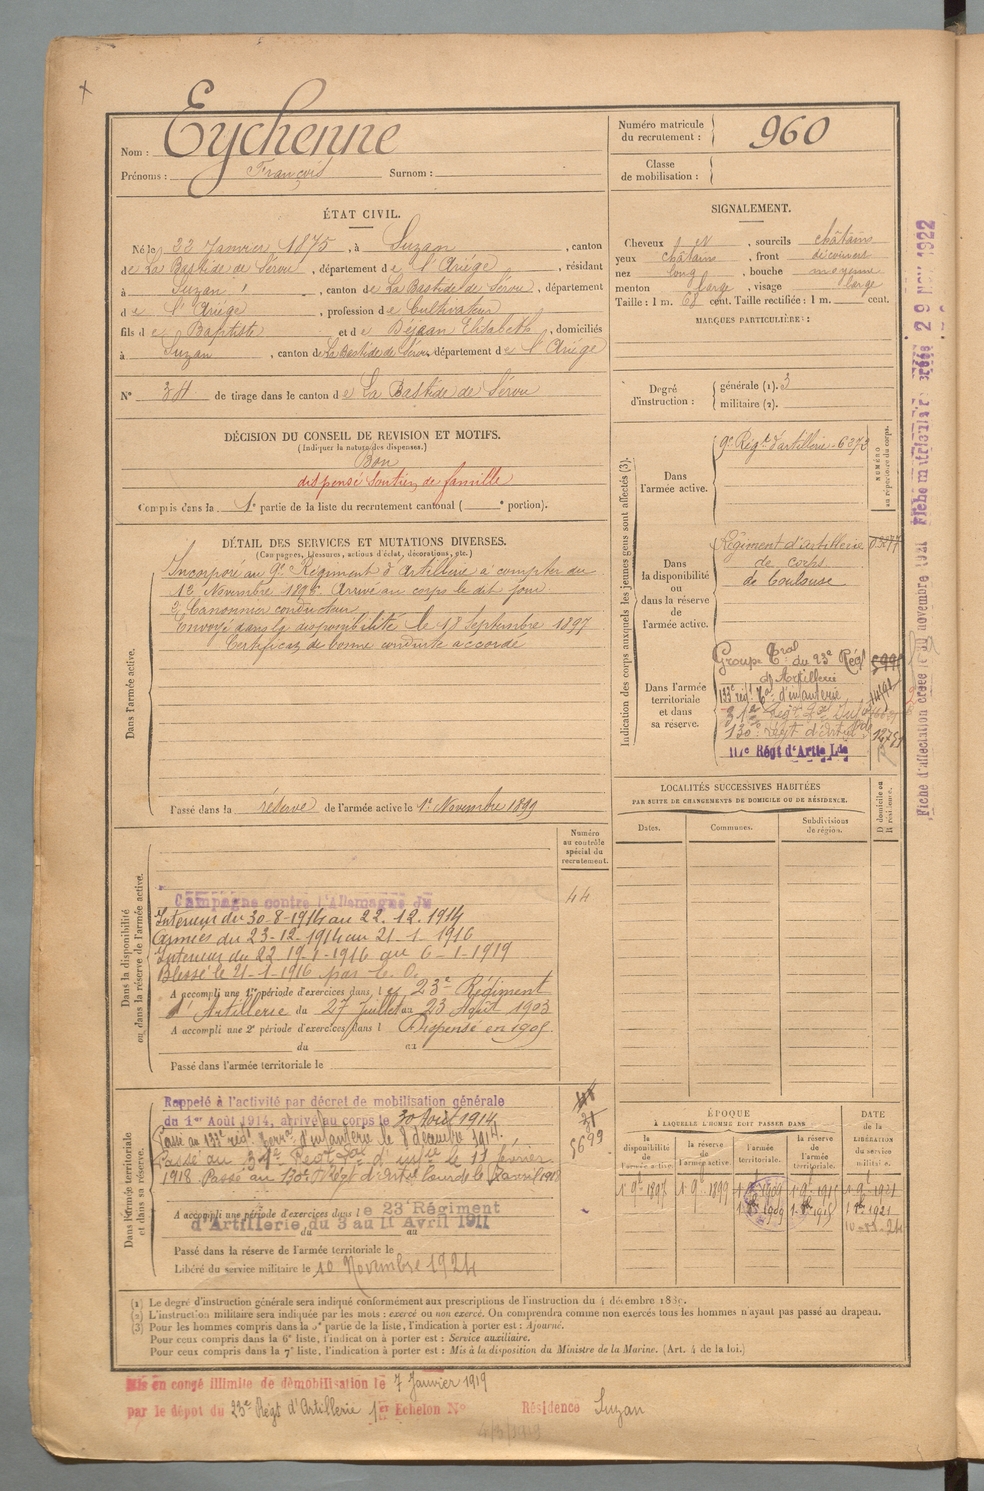 Nom : Eychenne
Prénoms : François Surnom :
Numéro matricule
du recrutement : 960
Classe
de mobilisation :
ÉTAT CIVIL.
Né le 22 Janvier 1875, à Suzan, canton
de La Bastide de Sérou, département de l'Ariége, résidant
à Suzan, canton de La Bastide de Sérou, département
de l'Ariége, profession de Cultivateur
fils de Baptiste et de Déjean Elisabeth, domiciliés
à Suzan, canton de La Bastide de Sérou, département de l'Ariége
N° de tirage dans le canton de La Bastide de Sérou
SIGNALEMENT.
Cheveux, sourcils châtains
yeux châtains, front découvert
nez long, bouche moyenne
menton large, visage large
Taille : 1 m. 68 cent. Taille rectifiée : 1 m. cent.
MARQUES PARTICULIÈRES :
Degré
d'instruction :
générale (1). 3
militaire (2).
DÉCISION DU CONSEIL DE REVISION ET MOTIFS.
(Indiquer la nature des dispenses.)
Bon
dispensé Soutien de famille
Compris dans la 1e partie de la liste du recrutement cantonal ( e portion).
DÉTAIL DES SERVICES ET MUTATIONS DIVERSES.
(Campagnes, blessures, actions d'éclat, décorations, etc.)
Dans l'armée active.
Incorporé au 9e Régiment d'Artillerie à compter du
12 Novembre 1896. Arrivé au corps le dit jour
2e Canonnier conducteur
Envoyé dans la disponibilité le 18 Septembre 1897
Certificat de bonne conduite accordé
Passé dans la réserve de l'armée active le 1er Novembre 1899
Indication des corps auxquels les jeunes gens sont affectés (3).
NUMÉRO
au répertoire du corps.
Dans
l'armée active.
9e Régt d'artillerie - 6373
Dans
la disponibilité
ou
dans la réserve
de
l'armée active.
Régiment d'artillerie
de corps
de Toulouse
Dans l'armée
territoriale
et dans
sa réserve.
Groupe Tal du 23e Régt
d'Artillerie
133e régt Tal d'infanterie
130e régt d'Artie Lde
117e Régt d'Artie Lde
LOCALITÉS SUCCESSIVES HABITÉES
PAR SUITE DE CHANGEMENTS DE DOMICILE OU DE RÉSIDENCE.
Dates.
Communes.
Subdivisions
de région.
D domicile ou
R résidence.
Numéro
au contrôle
spécial du
recrutement.
44
Dans la disponibilité
ou dans la réserve de l'armée active.
Campagne contre l'Allemagne du
Intérieur du 30-8-1914 au 22.12.1914
Armées du 23-12-1914 au 21-1-1916
Intérieur du 22-1-1916 au 6-1-1919
Blessé le 21-1-1916 par
A accompli une 1re période d'exercices dans le 23e Régiment
d'Artillerie du 27 Juillet au 23 Août 1903
A accompli une 2e période d'exercices dans l Dispensé en 1905
du au
Passé dans l'armée territoriale le
Dans l'armée territoriale
et dans sa réserve.
Rappelé à l'activité par décret de mobilisation générale
du 1er Août 1914, arrivé au corps le 30 Août 1914.
Passé au 133e régt terral d'infanterie le 8 décembre 1914.
Passé au 31e Régt Tal d'infie le 11 février
1918. Passé au 130e Régt d'Artie lourde le avril 1918
5699
A accompli une période d'exercices dans le 23e Régiment
d'Artillerie du 3 au 11 Avril 1911
Passé dans la réserve de l'armée territoriale le
Libéré du service militaire le 10 Novembre 1924
ÉPOQUE
À LAQUELLE L'HOMME DOIT PASSER DANS
la
disponibilité
de
l'armée active.
la réserve
de
l'armée active.
l'armée
territoriale.
la réserve
de
l'armée
territoriale.
DATE
de la
LIBÉRATION
du service
militaire.
1 9bre 1897
1 9bre 1899
1 9bre 1909
1 9bre 1915
1 9bre 1921
(1) Le degré d'instruction générale sera indiqué conformément aux prescriptions de l'instruction du 4 décembre 1889.
(2) L'instruction militaire sera indiquée par les mots : exercé ou non exercé. On comprendra comme non exercés tous les hommes n'ayant pas passé au drapeau.
(3) Pour les hommes compris dans la 5e partie de la liste, l'indication à porter est : Ajourné.
Pour ceux compris dans la 6e liste, l'indication à porter est : Service auxiliaire.
Pour ceux compris dans la 7e liste, l'indication à porter est : Mis à la disposition du Ministre de la Marine. (Art. 4 de la loi.)
Mis en congé illimité de démobilisation le 7 Janvier 1919
par le dépôt du 23e Régt d'Artillerie 1er Echelon N° Résidence Suzan
4/3/1919